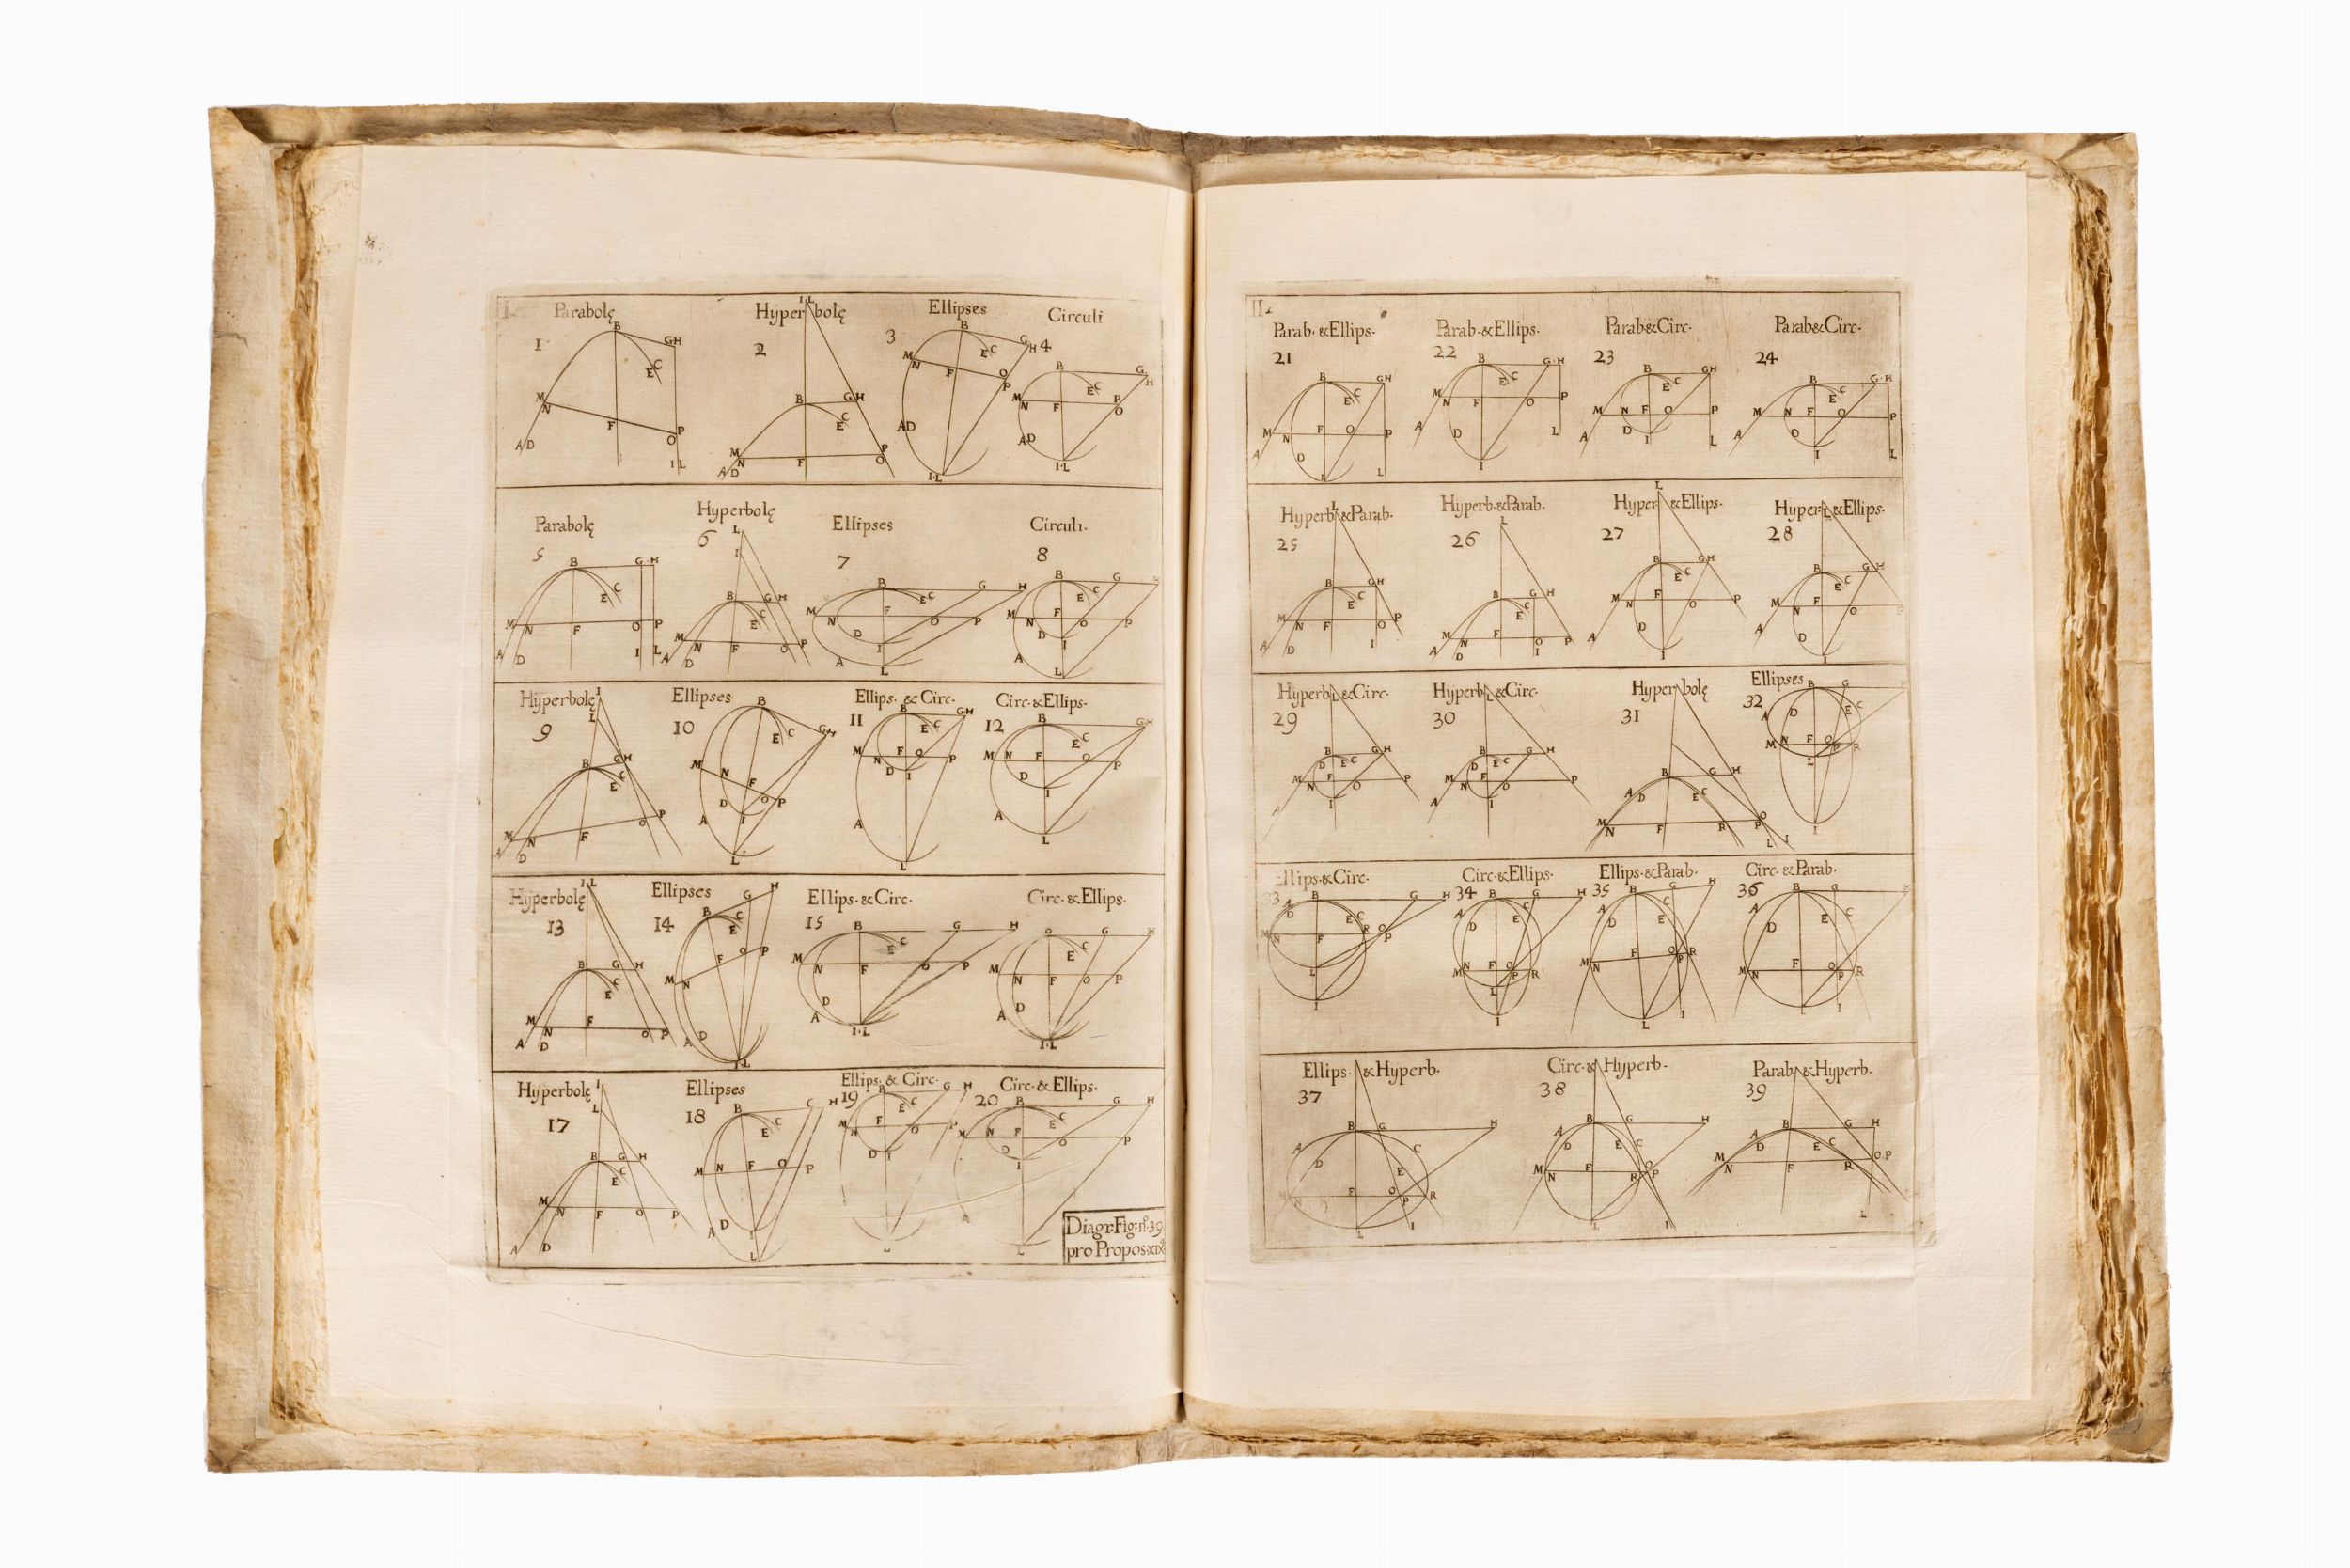 I.
Parabolę
1
B
GH
C
E
M
N
F
P
O
A D
I L
Hyperbolę
2
I L
B
G H
C
E
M
N
F
P
O
A D
Ellipses
3
B
G H
E C
M
N
F
O
P
A D
I·L
Circuli
4
B
G
H
E C
M
N
F
P
O
A D
I·L
Parabolę
5
B
G H
C
E
M N
F
O P
A D
I L
Hyperbolę
6
L
I
B
G H
C
E
M N
F
O P
A D
Ellipses
7
B
G
H
E C
M
F
N
O
P
D
I
A
L
Circuli.
8
B
G
C
E
M
N
F
O
P
D
I
A
L
Hyperbolę
9
I
L
B
G H
C
E
M
N
F
O
P
A D
Ellipses
10
B
G H
C
E
M
N
F
D
O P
A
I
L
Ellips. & Circ.
11
B
GH
C
E
M
N
F
O
P
D I
A
L
Circ. & Ellips.
12
B
G H
C
E
M N
F
O
P
D
I
A
L
Hyperbolę
13
I L
B
G H
C
E
M
N
F
O P
A D
Ellipses
14
H
G
B
C
E
F
O P
M
N
A D
I L
Ellips. & Circ.
15
B
G
H
E C
M
N
F
O
P
D
A
I·L
Circ. & Ellips.
G
H
C
E
M
N
F
O
P
D
A
I·L
Hyperbolę
17
I
L
B
G H
C
E
M
N
F
O
P
A D
Ellipses
18
B
H
C
E
M N
F
O
P
A D
I
L
Ellips. & Circ.
19
B
G H
C
E
M
N
F
O
P
D I
Circ. & Ellips.
20
B
G
H
C
E
M
N
F
O
P
D
I
Diagr: Fig: nº 39
pro Propos: XIX
II.
Parab. & Ellips.
21
B
GH
C
E
M
N
F
O
P
D
A
L
Parab. & Ellips.
22
B
G·H
E C
M
N
F
O
P
A
D
L
I
Parab & Circ.
23
B
GH
C
E
M
N F O
P
D
A
I
L
Parab & Circ.
24
B
G·H
C
E
M
N F O
P
D
A
I
L
Hyperb. & Parab.
25
L
B
G H
C
E
M
N
F
O
P
A D
I
Hyperb. & Parab.
26
L
B
G H
C
E
M
N
F
O
P
A D
I
Hyper. & Ellips.
27
L
B
G H
E C
M
N
F
O
P
D
A
I
Hyper. & Ellips.
28
L
B
G H
C
E
M
N
F
O
D
A
I
Hyperb. & Circ.
29
L
B
G H
D E C
M
N
F
O
P
A
I
Hyperb. & Circ.
30
L
B
G H
D E C
M
N
F
O
P
A
I
Hyperbolę
31
B
G H
A D
E C
M
N
F
R
O
P
L I
Ellipses
32
B
G
A
D
E C
M N
F
O
P R
L
I
Ellips. & Circ.
33
B
G
H
A
D
C
E
R O
P
F
L
I
Circ. & Ellips.
34
B
G
H
A
C
E
D
M N
F O
P R
L
I
Ellips. & Parab.
35
B
G
H
A
C
D
E
M
N
F
O R
P
L
I
Circ. & Parab.
36
B
G
A
C
D
E
M
N
F
O
P R
L
I
Ellips. & Hyperb.
37
B
G
H
A
C
D
E
F
O
P
R
L
I
Circ. & Hyperb.
38
B
G
H
A
D
E C
M
N
F
O
R P
L
I
Parab. & Hyperb.
39
B
G H
A
D
E C
M
N
F
R
O P
L